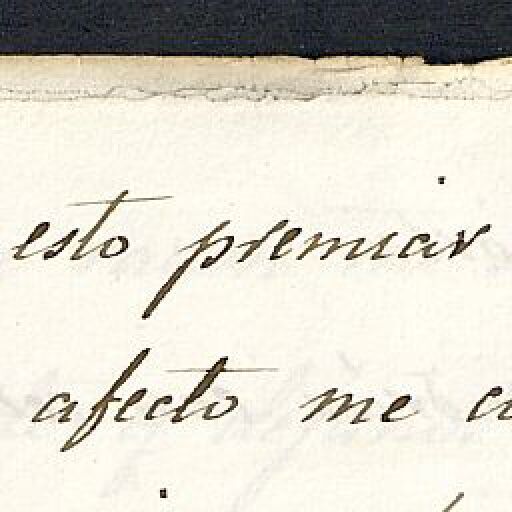 esto premiar
afecto me